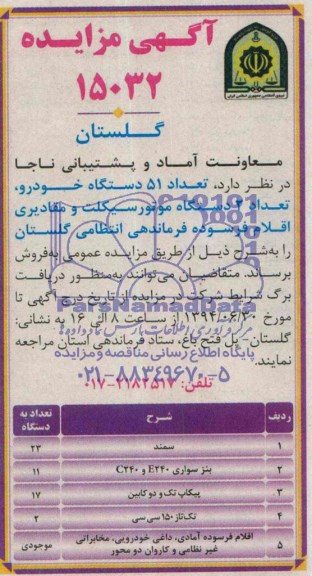 آگهی مزایده
۱۵۰۳۲
گلستان
معاونت آماد و پشتیبانی ناجا
در نظر دارد، تعداد ۵۱ دستگاه خودرو،
تعداد ۲ دستگاه موتورسیکلت و مقادیری
اقلام فرسوده فرماندهی انتظامی گلستان
را به شرح ذیل از طریق مزایده عمومی به فروش
برساند. متقاضیان می‌توانند به‌منظور دریافت
برگ شرایط شرکت در مزایده از تاریخ درج آگهی تا
مورخ ۱۳۹۴/۰۶/۲۰ از ساعت ۸ الی ۱۶ به نشانی:
گلستان- پل فتح باغ، ستاد فرماندهی استان مراجعه
نمایند.
تلفن: ۲۱۸۲۵۱۷-۰۱۷
ParsNamadData
پایگاه اطلاع رسانی مناقصه و مزایده
۰۲۱-۸۸۳۴۹۶۷۰-۵
ردیف شرح تعداد به دستگاه
۱ سمند ۲۳
۲ بنز سواری E۲۴۰ و C۲۴۰ ۱۱
۳ پیکاپ تک و دو کابین ۱۷
۴ تک‌تاز ۱۵۰ سی سی ۲
۵ اقلام فرسوده آمادی، داغی خودرویی، مخابراتی
غیر نظامی و کاروان دو محور موجودی